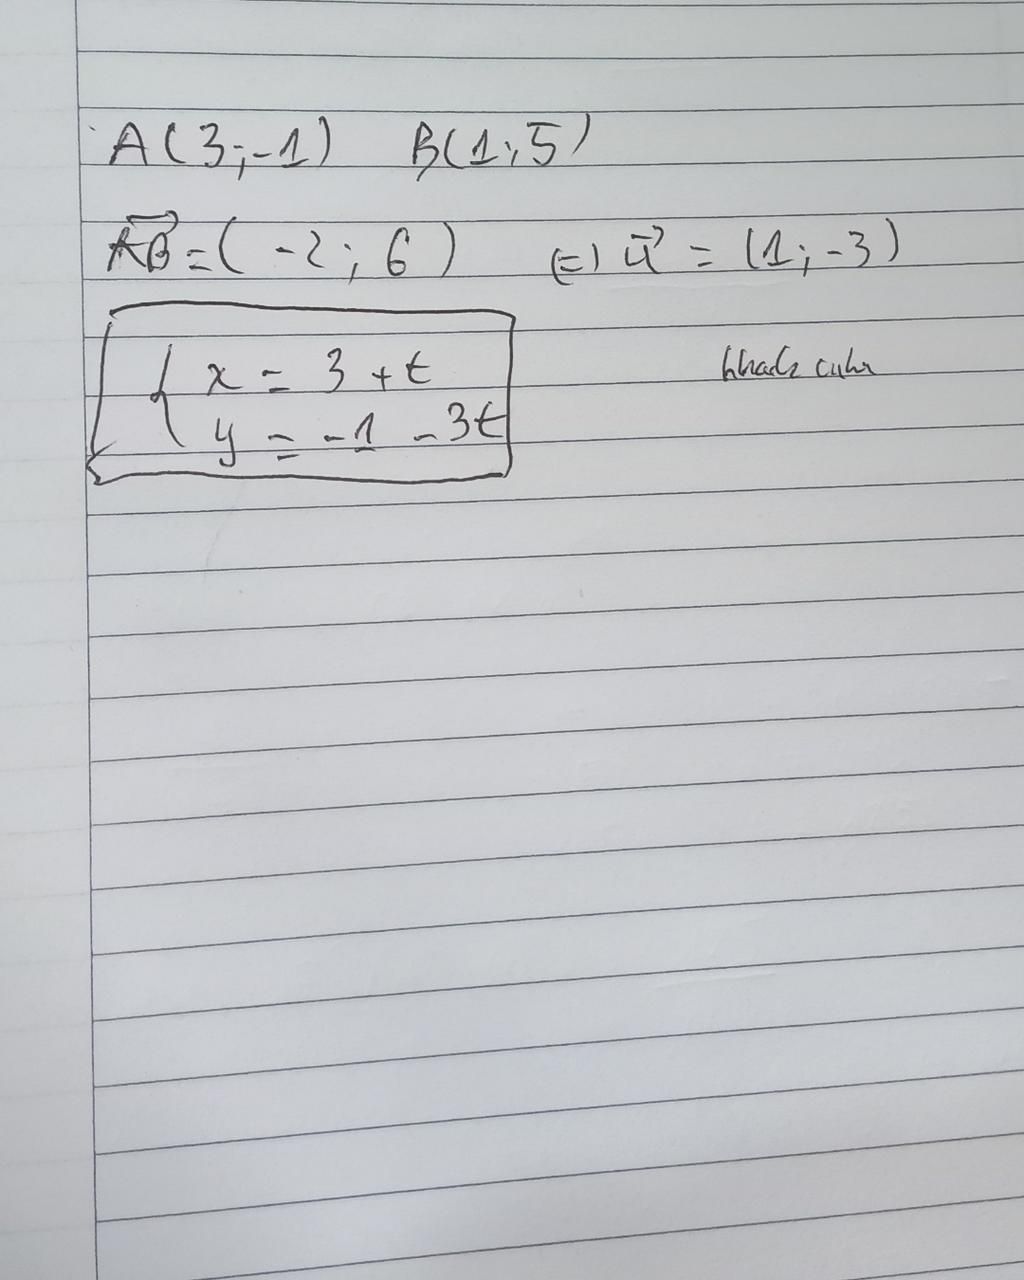 A(3;-1) B(1;5)
AB⃗ = (-2; 6) (=) u⃗ = (1; -3)
{ x = 3 + t
y = -1 - 3t